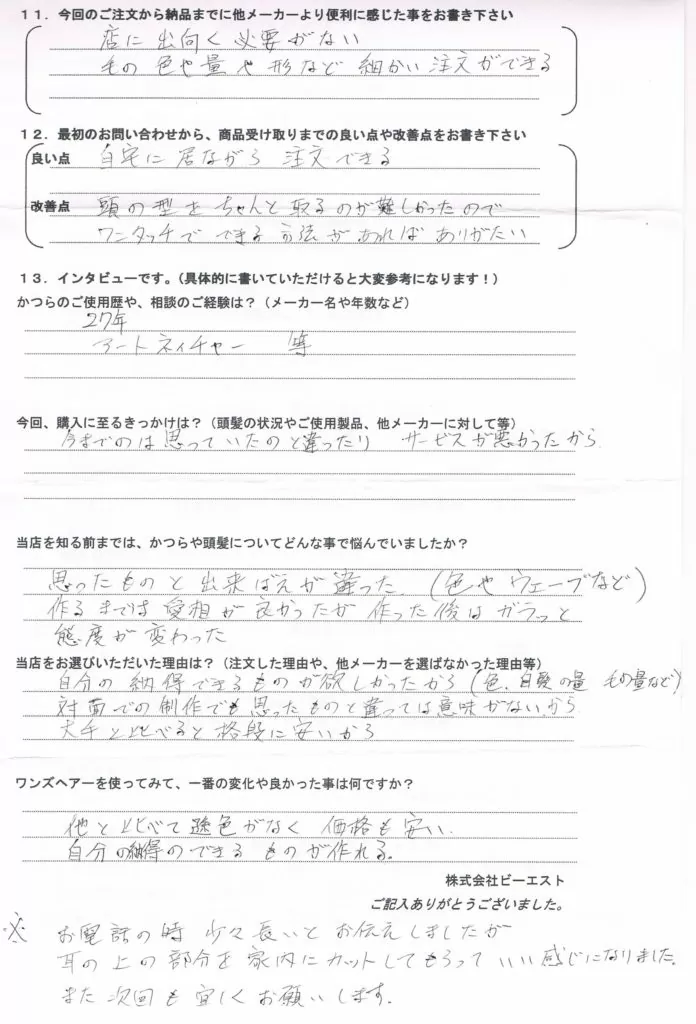 11．今回のご注文から納品までに他メーカーより便利に感じた事をお書き下さい
店に出向く必要がない
毛の色や量や形など細かい注文ができる
12．最初のお問い合わせから、商品受け取りまでの良い点や改善点をお書き下さい
良い点 自宅に居ながら注文できる
改善点 頭の型をちゃんと取るのが難しかったので
ワンタッチでできる方法があればありがたい
13．インタビューです。（具体的に書いていただけると大変参考になります！）
かつらのご使用歴や、相談のご経験は？（メーカー名や年数など）
27年
アートネイチャー 等
今回、購入に至るきっかけは？（頭髪の状況やご使用製品、他メーカーに対して等）
今までのは思っていたのと違ったり サービスが悪かったから
当店を知る前までは、かつらや頭髪についてどんな事で悩んでいましたか？
思ったものと出来ばえが違った（色やウェーブなど）
作るまでは愛想が良かったが作った後はガラっと
態度が変わった
当店をお選びいただいた理由は？（注文した理由や、他メーカーを選ばなかった理由等）
自分の納得できるものが欲しかったから（色、白髪の量 毛の量など）
対面での制作でも思ったものと違っては意味がないから
大手と比べると格段に安いから
ワンズヘアーを使ってみて、一番の変化や良かった事は何ですか？
他と比べて遜色がなく 価格も安い。
自分の納得のできるものが作れる。
株式会社ビーエスト
ご記入ありがとうございました。
※ お電話の時 少々長いとお伝えしましたが
耳の上の部分を家内にカットしてもらっていい感じになりました。
また次回も宜しくお願いします。